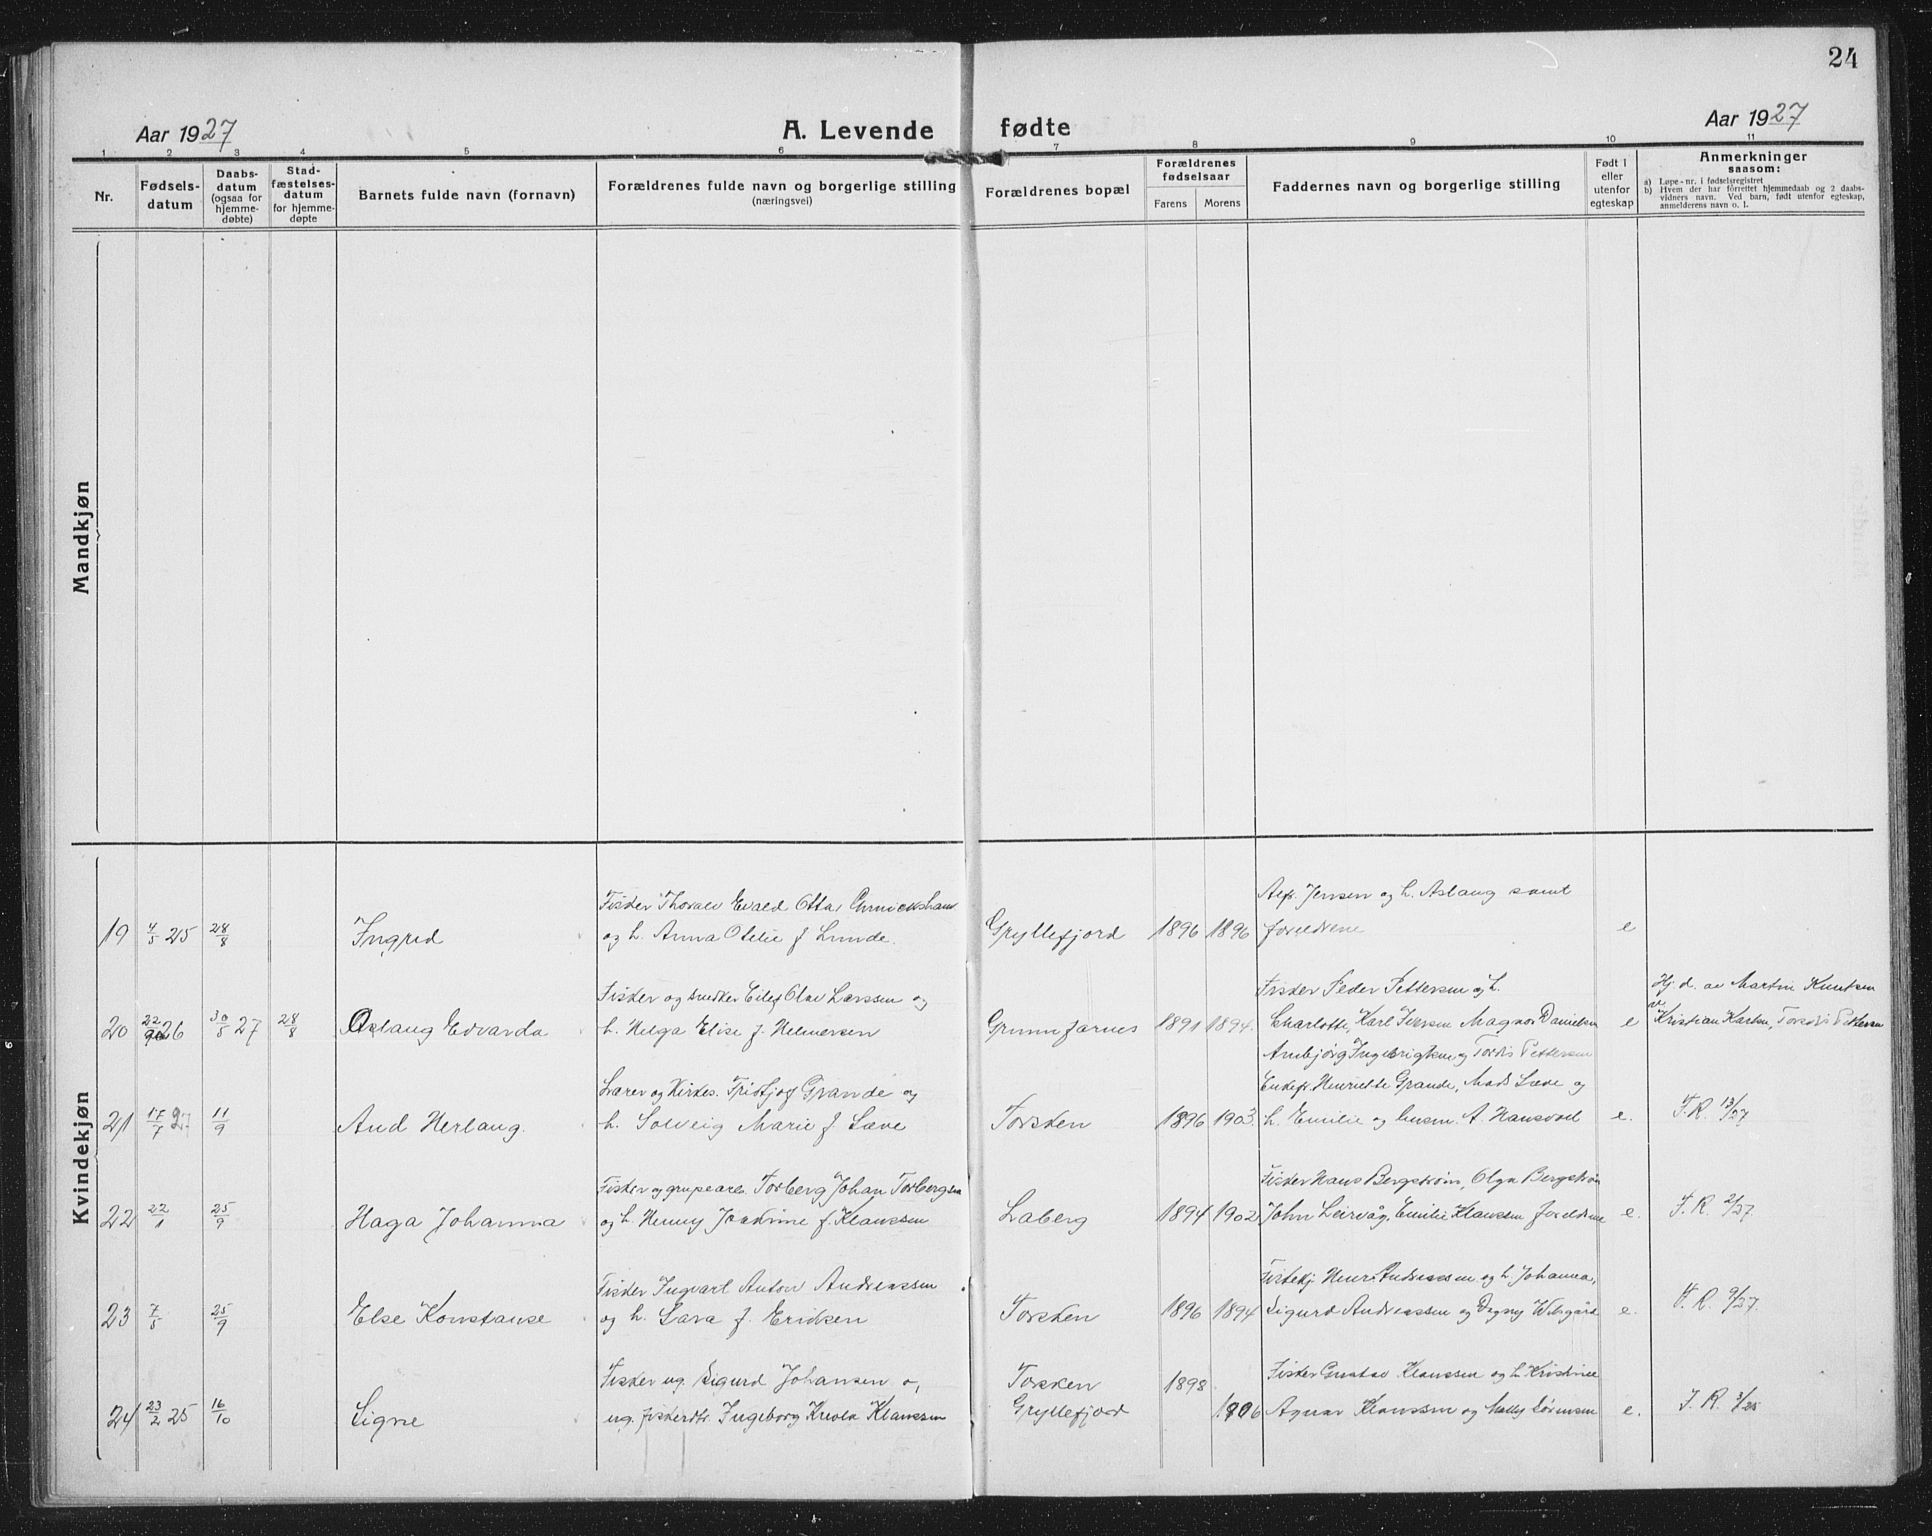 24
Aar 1927
A. Levende fødte
Aar 1927
1 2 3 4 5 6 7 8 9 10 11
Nr.
Fødsels-
datum
Daabs-
datum
(ogsaa for
hjemme-
døbte)
Stad-
fæstelses-
datum
for hjemme-
døpte
Barnets fulde navn (fornavn)
Forældrenes fulde navn og borgerlige stilling
(næringsvei)
Forældrenes bopæl
Forældrenes
fødselsaar
Farens Morens
Faddernes navn og borgerlige stilling
Født i
eller
utenfor
egteskap
Anmerkninger
saasom:
a) Løpe-nr. i fødselsregistret
b) Hvem der har forrettet hjemmedaab og 2 daabs-
vidners navn. Ved barn, født utenfor egteskap,
anmelderens navn o. l.
Mandkjøn
Kvindekjøn
Fisker Thoralv Evald Otta
Jensen og h. Aslaug samt
19 4/5 25 28/8 Ingrid og h. Anna Otelie f. Lunde. Gryllefjord 1896 1896 foreldrene e
Fisker og snedker Eilef Olav Larssen og
Fisker Peder Pettersen og h.
Hj. d. av Martin Knutsen
20 22/9 26 30/5 27 28/8 Aslaug Edvarda h. Helga Elise f. Helmersen Grunnfarnes 1891 1894. Charlotte, Karl Iversen Magnor Danielsen e Kristian Karlsen, Tordis Pettersen
Arnbjørg Ingebrigtsen og Tordis Pettersen
Lærer og Kirkes. Fridtjof Grande og
Enkefr. Henriette Grande, Mads Læve og
21 17/7 27 11/9 Aud Herlaug. h. Solveig Marie f. Læve Torsken 1896 1903. h. Emilie og A. Hansvold e. F.R. 13/27
Fisker og grubearb. Torberg Johan Torbergsen
Fisker Hans Bergstrøm, Olga Bergstrøm
22 22/1 25/9 Haga Johanna og h. Henny Joakrine f. Klaussen Laberg 1894 1902 John Leirvåg, Emilie Klaussen foreldrene e. F.R. 2/27.
Fisker Ingvart Anton Andreassen
Andreassen og h. Johanna,
23 7/5 25/9 Else Konstanse og h. Sara f. Eriksen Torsken 1896 1894 Sigurd Andreassen og Dagny Wibgård e. F.R. 9/27.
Fisker ug. Sigurd Johansen o,
Torsken 1898
Fisker Gustav Klaussen og h. Kristine
24 23/2 25 16/10 Signe ug. fiskerdtr. Ingeborg Klaussen Gryllefjord 1906 Agnar Klaussen og Mally Sørensen e. F.R. 3/25